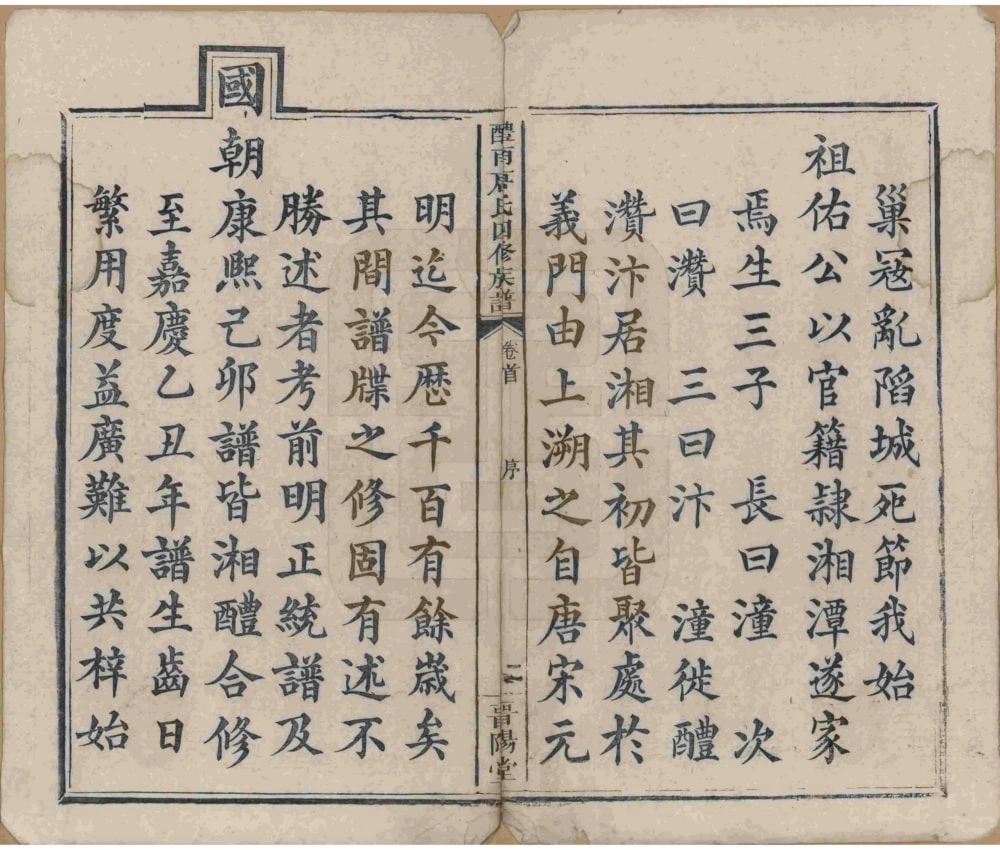 巢寇亂陷城死節我始
祖佑公以官籍隷湘潭遂家
焉生三子 長曰潼 次
曰灒 三曰汴 潼徙醴
灒汴居湘其初皆聚處於
義門由上溯之自唐宋元
醴南唐氏四修族譜 卷首 序 二 晋陽堂
明迄今歷千百有餘歲矣
其間譜牒之修固有述不
勝述者考前明正統譜及
國朝康熙己卯譜皆湘醴合修
至嘉慶乙丑年譜生齒日
繁用度益廣難以共梓始